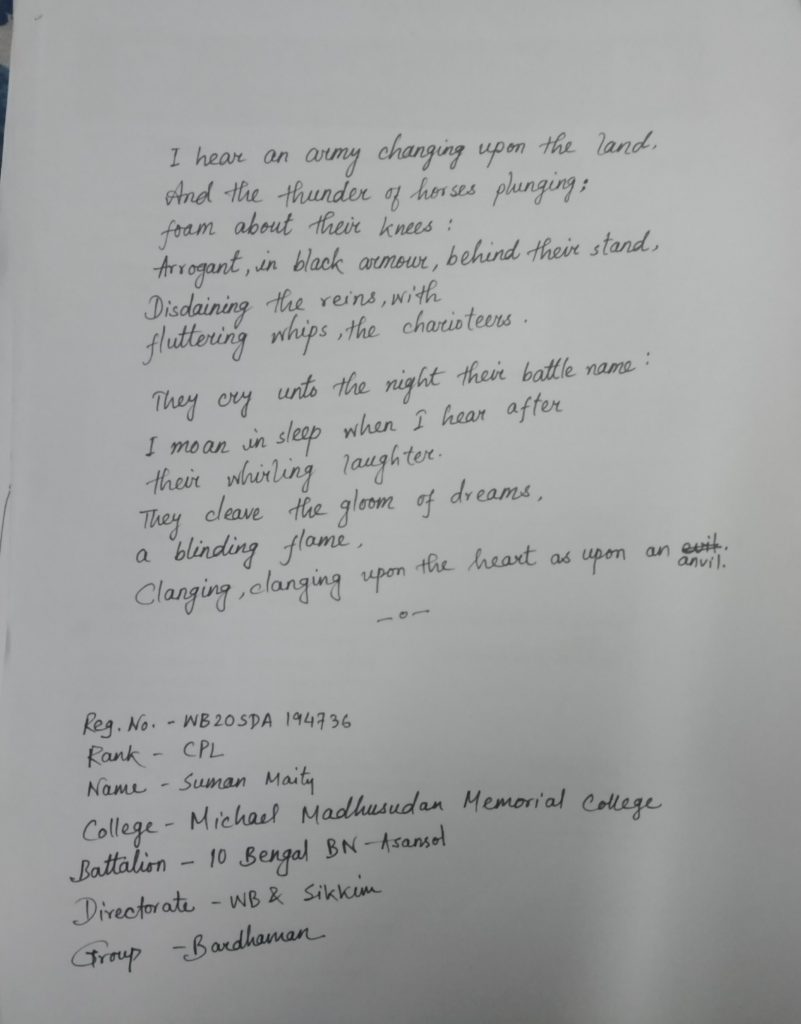 I hear an army changing upon the land.
And the thunder of horses plunging;
foam about their knees :
Arrogant, in black armour, behind their stand,
Disdaining the reins, with
fluttering whips, the charioteers.
They cry unto the night their battle name :
I moan in sleep when I hear after
their whirling laughter.
They cleave the gloom of dreams,
a blinding flame,
Clanging, clanging upon the heart as upon an evil.
anvil.
—o—
Reg. No. - WB20SDA 194736
Rank - CPL
Name - Suman Maity
College - Michael Madhusudan Memorial College
Battalion - 10 Bengal BN - Asansol
Directorate - WB & Sikkim
Group - Bardhaman